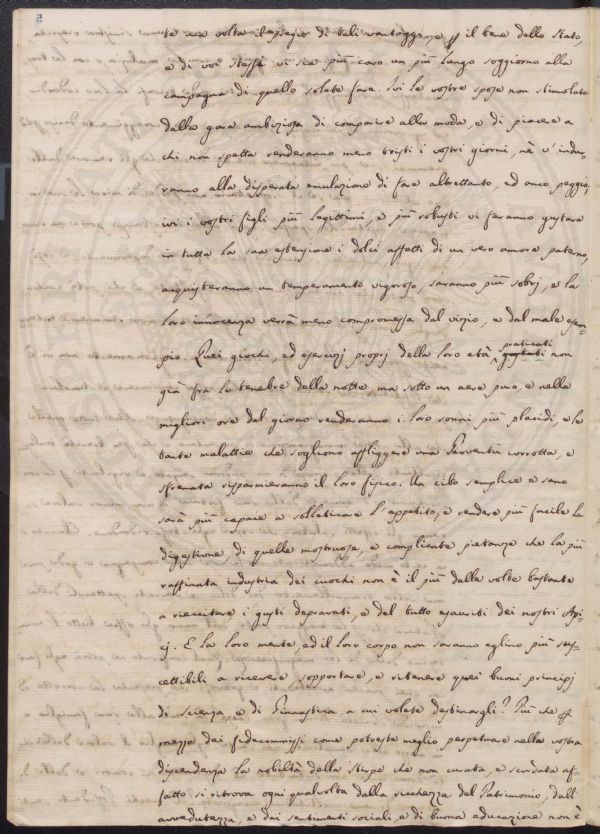 te una volta il pregio di tali vantaggi, e p il bene dello Stato,
e di voi stessi vi sia più caro un più lungo soggiorno alla
campagna di quello solete fare. Ivi le vostre spose non stimolate
dalla gara ambiziosa di comparire alla moda, e di piacere a
chi non spetta renderanno meno tristi i vostri giorni, nè v'indur-
ranno alla disperata emulazione di fare altrettanto, ed anco peggio,
ivi i vostri figli più legittimi, e più robusti vi faranno gustare
in tutta la sua estensione i dolci affetti di un vero amore paterno,
acquisteranno un temperamento vigoroso, saranno più sobrj, e la
loro innocenza verrà meno compromessa dal vizio, e dal male esem-
pio. Quei giochi, ed esercizj proprj della loro età praticati non
già fra le tenebre della notte, ma sotto un aere puro, e nelle
migliori ore del giorno renderanno i loro sonni più placidi, e le
tante malattie che sogliono affliggere una Gioventù corrotta, e
sfrenata risparmieranno il loro fisico. Un cibo semplice e sano
sarà più capace a solleticare l'appetito, e rendere più facile la
digestione di quelle mostruose, e complicate pietanze che la più
raffinata industria dei cuochi non è il più delle volte bastante
a rieccitare i gusti depravati, e del tutto esauriti dei nostri Api-
cj. E la loro mente, ed il loro corpo non saranno eglino più sus-
cettibili a ricevere, sopportare, e ritenere quei buoni principj
di scienza, e di Ginnastica a cui volete destinargli? Più che p
mezzo dei fidecommissi come potreste meglio perpetuare nella vostra
discendenza la nobiltà della stirpe che non curata, e scordata af-
fatto si ritrova ogni qualvolta dalla ricchezza del Patrimonio, dall'
avvedutezza, e dai sentimenti sociali, e di buona educazione non è